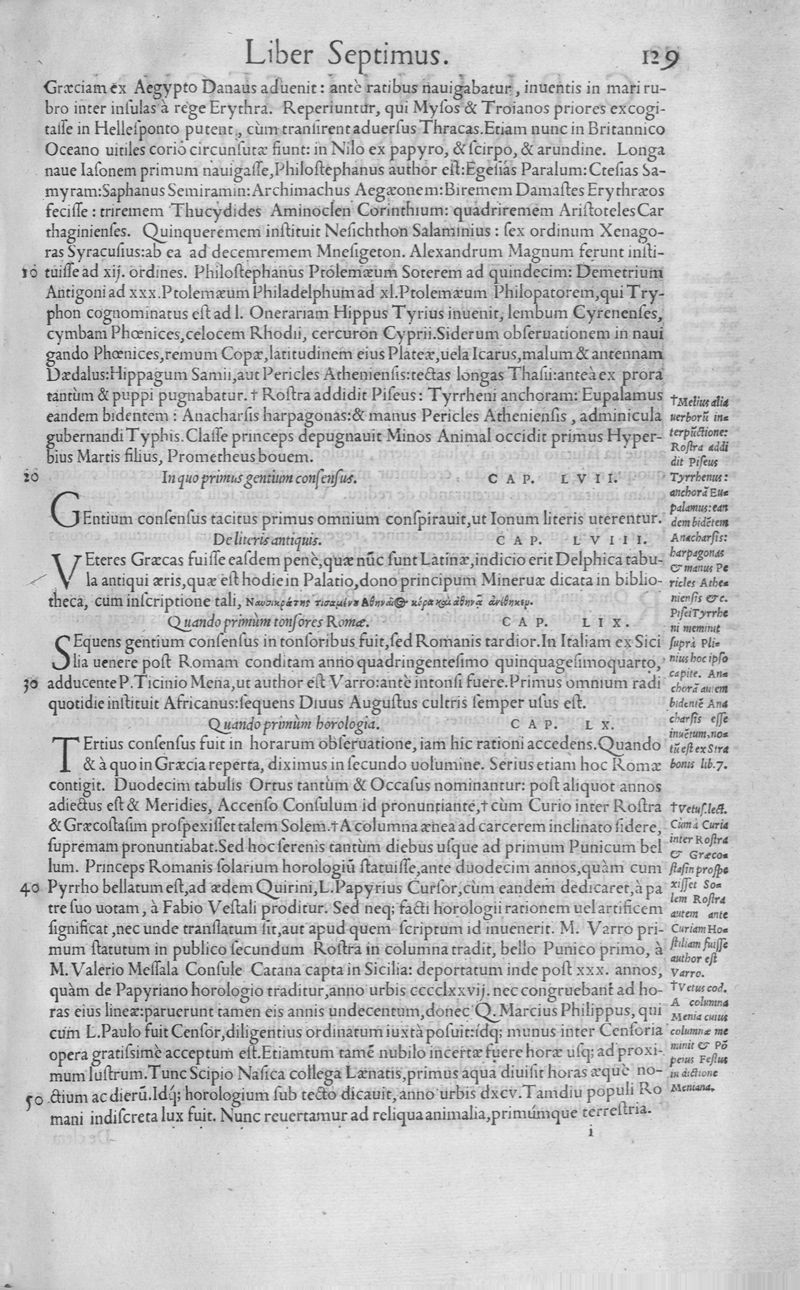 Liber Septimus. 129
Græciam ex Aegypto Danaus aduenit: antè ratibus nauigabatur, inuentis in mari ru-
bro inter inſulas à rege Erythra. Reperiuntur, qui Myſos & Troianos priores excogi-
taſſe in Helleſponto putent, cùm tranſirent aduerſus Thracas.Etiam nunc in Britannico
Oceano uitiles corio circunſutæ fiunt: in Nilo ex papyro, & ſcirpo, & arundine. Longa
naue Iaſonem primum nauigaſſe,Philoſtephanus author eſt:Egeſias Paralum:Cteſias Sa-
myram:Saphanus Semiramin:Archimachus Aegæonem:Biremem Damaſtes Erythræos
feciſſe: triremem Thucydides Aminoclen Corinthium: quadriremem Ariſtoteles Car
thaginienſes. Quinqueremem inſtituit Neſichthon Salaminius: ſex ordinum Xenago-
ras Syracuſius:ab ea ad decemremem Mneſigeton. Alexandrum Magnum ferunt inſti-
10 tuiſſe ad xij. ordines. Philoſtephanus Ptolemæum Soterem ad quindecim: Demetrium
Antigoni ad xxx.Ptolemæum Philadelphum ad xl.Ptolemæum Philopatorem,qui Try-
phon cognominatus eſt ad l. Onerariam Hippus Tyrius inuenit, lembum Cyrenenſes,
cymbam Phœnices,celocem Rhodii, cercuron Cyprii.Siderum obſeruationem in naui
gando Phœnices,remum Copæ,latitudinem eius Plateæ,uela Icarus,malum & antennam
Dædalus:Hippagum Samii,aut Pericles Athenienſis:tectas longas Thaſii:anteà ex prora
tantùm & puppi pugnabatur. † Roſtra addidit Piſeus: Tyrrheni anchoram: Eupalamus
eandem bidentem: Anacharſis harpagonas:& manus Pericles Athenienſis, adminicula
gubernandi Typhis.Claſſe princeps depugnauit Minos Animal occidit primus Hyper-
bius Martis filius, Prometheus bouem.
20 In quo primus gentium conſenſus. CAP. LVII.
GEntium conſenſus tacitus primus omnium conſpirauit,ut Ionum literis uterentur.
De literis antiquis. CAP. LVIII.
VEteres Græcas fuiſſe eaſdem penè,quæ nũc ſunt Latinæ,indicio erit Delphica tabu-
la antiqui æris,quæ eſt hodie in Palatio,dono principum Mineruæ dicata in biblio-
theca, cum inſcriptione tali,
Quando primùm tonſores Romæ. CAP. LIX.
SEquens gentium conſenſus in tonſoribus fuit,ſed Romanis tardior.In Italiam ex Sici
lia uenere poſt Romam conditam anno quadringenteſimo quinquageſimoquarto,
30 adducente P.Ticinio Mena,ut author eſt Varro:antè intonſi fuere.Primus omnium radi
quotidie inſtituit Africanus:ſequens Diuus Auguſtus cultris ſemper uſus eſt.
Quando primùm horologia. CAP. LX.
TErtius conſenſus fuit in horarum obſeruatione, iam hic rationi accedens.Quando
& à quo in Græcia reperta, diximus in ſecundo uolumine. Serius etiam hoc Romæ
contigit. Duodecim tabulis Ortus tantùm & Occaſus nominantur: poſt aliquot annos
adiectus eſt & Meridies, Accenſo Conſulum id pronuntiante,† cùm Curio inter Roſtra
& Græcoſtaſim proſpexiſſet talem Solem.† A columna ænea ad carcerem inclinato ſidere,
ſupremam pronuntiabat.Sed hoc ſerenis tantùm diebus uſque ad primum Punicum bel
lum. Princeps Romanis ſolarium horologiũ ſtatuiſſe,ante duodecim annos,quàm cum
40 Pyrrho bellatum eſt,ad ædem Quirini,L.Papyrius Curſor,cùm eandem dedicaret,à pa
tre ſuo uotam, à Fabio Veſtali proditur. Sed neq; facti horologii rationem uel artificem
ſignificat,nec unde tranſlatum ſit,aut apud quem ſcriptum id inuenerit. M. Varro pri-
mum ſtatutum in publico ſecundum Roſtra in columna tradit, bello Punico primo, à
M.Valerio Meſſala Conſule Catana capta in Sicilia: deportatum inde poſt xxx. annos,
quàm de Papyriano horologio traditur,anno urbis cccclxxvij. nec congruebant ad ho-
ras eius lineæ:paruerunt tamen eis annis undecentum,donec Q. Marcius Philippus, qui
cum L.Paulo fuit Cenſor,diligentius ordinatum iuxtà poſuit:idq; munus inter Cenſoria
opera gratiſsimè acceptum eſt.Etiamtum tamẽ nubilo incertæ fuere horæ uſq; ad proxi-
mum luſtrum.Tunc Scipio Naſica collega Lænatis,primus aqua diuiſit horas æquè no-
50 ctium ac dierũ.Idq; horologium ſub tecto dicauit,anno urbis dxcv.Tamdiu populi Ro
mani indiſcreta lux fuit. Nunc reuertamur ad reliqua animalia,primùmque terreſtria.
i
†Melius alia
uerborũ in-
terpũctione:
Roſtra addi
dit Piſeus
Tyrrhenus:
anchorã Eu-
palamus:ean
dem bidẽtem
Anacharſis:
harpagonas
& manus Pe
ricles Athe-
nienſis &c.
Piſei Tyrrhe
ni meminit
ſuprà Pli-
nius hoc ipſo
capite. An-
chorã autem
bidentẽ Ana
charſis eſſe
inuentum,no-
tũ eſt ex Stra
bonis lib.7.
†Vetuſ.lect.
Cùm à Curia
inter Roſtra
& Græco-
ſtaſin proſpe
xiſſet So-
lem Roſtra
autem ante
Curiam Ho-
ſtiliam fuiſſe
author eſt
Varro.
†Vetus cod.
A columna
Menia cuius
columnæ me
minit & Põ
peius Feſtus
in dictione
Meniana.